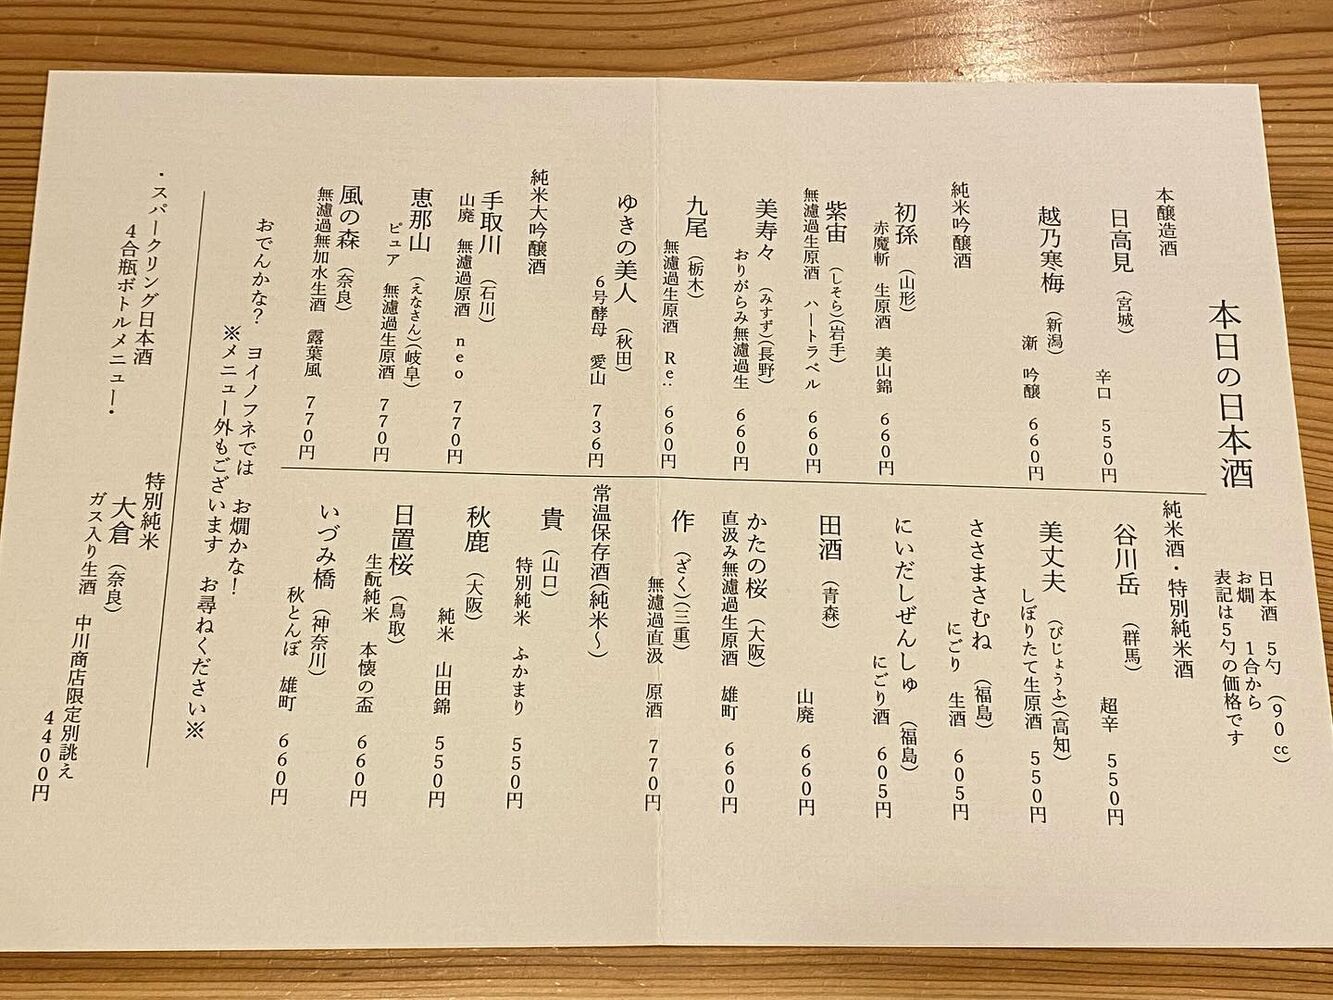 本日の日本酒
日本酒　5勺　(90㏄)
お燗　1合から
表記は5勺の価格です
本醸造酒
日高見　(宮城)
辛口　550円
越乃寒梅　(新潟)
漸　吟醸　660円
純米吟醸酒
初孫　(山形)
赤魔斬　生原酒　美山錦　660円
紫宙　(しそら)(岩手)
無濾過生原酒　ハートラベル　660円
美寿々　(みすず)(長野)
おりがらみ無濾過生　660円
九尾　(栃木)
無濾過生原酒　Re:　660円
ゆきの美人　(秋田)
6号酵母　愛山　736円
純米大吟醸酒
手取川　(石川)
山廃　無濾過原酒　neo　770円
恵那山　(えなさん)(岐阜)
ピュア　無濾過生原酒　770円
風の森　(奈良)
無濾過無加水生酒　露葉風　770円
純米酒・特別純米酒
谷川岳　(群馬)
超辛　550円
美丈夫　(びじょうふ)(高知)
しぼりたて生原酒　550円
ささまさむね　(福島)
にごり　生酒　605円
にいだしぜんしゅ　(福島)
にごり酒　605円
田酒　(青森)
山廃　660円
かたの桜　(大阪)
直汲み無濾過生原酒　雄町　660円
作　(ざく)(三重)
無濾過直汲　原酒　770円
常温保存酒(純米～)
貴　(山口)
特別純米　ふかまり　550円
秋鹿　(大阪)
純米　山田錦　550円
日置桜　(鳥取)
生酛純米　本懐の盃　660円
いづみ橋　(神奈川)
秋とんぼ　雄町　660円
おでんかな?　ヨイノフネでは　お燗かな!
※メニュー外もございます　お尋ねください※
・スパークリング日本酒
4合瓶ボトルメニュー・
特別純米
大倉　(奈良)
ガス入り生酒　中川商店限定別誂え
4400円